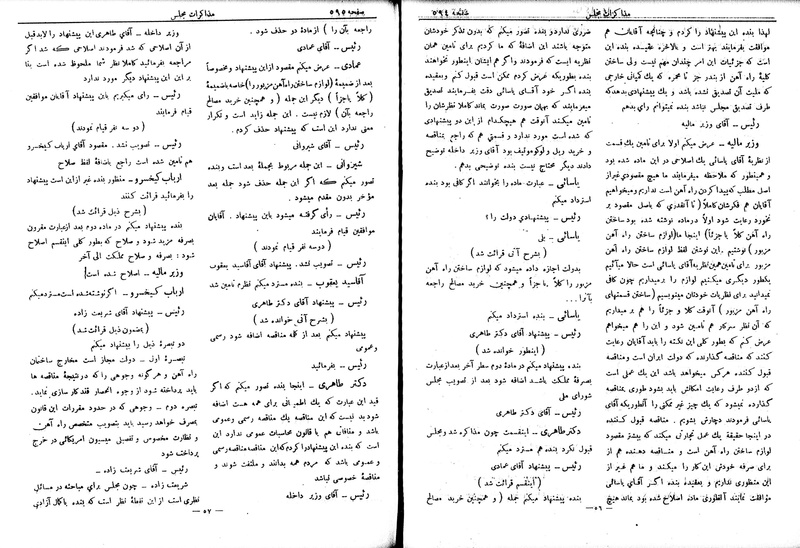 مذاکرات مجلس
صفحه ۵۹۴
لهذا بنده این پیشنهاد را کردم و چنانچه آقایان هم
موافقت بفرمایند بهتر است و بالاخره عقیده بنده این
است که جزئیات این امر چندان مهم نیست ولی ساختن
کلیهٔ راه آهن از بندر جز تا محمره که یک کمپانی خارجی
که ملیت آن تصدیق نشده باشد و یک پیشنهادی بدهد که
طرف تصدیق مجلس نباشد بنده نمیتوانم رأی بدهم
رئیس ـ آقای وزیر مالیه
وزیر مالیه ـ عرض میکنم اولا برای تأمین یک قسمت
از نظریهٔ آقای یاسائی یک اصلاحی در این ماده شده بود
و همینطور که ملاحظه میفرمایند ما هیچ مقصودی غیر از
اصل مطلب که پیدا کردن راه آهن است نداریم و میخواهیم
آقایان هم فکرشان کاملا (تا آنقدری که باصل مقصود بر
نخورد رعایت شود) اولا در ماده نوشته شده بود ساختن
راه آهن کلا یا جزءاً) اینجا ما (لوازم ساختن راه آهن
مزبور) نوشتیم . این نوشتن لفظ لوازم ساختن راه آهن
مزبور برای تأمین همین نظریه آقای یاسائی است حالا میآئیم
بطور دیگری میکنیم لوازم را برمیداریم چون کافی
نمیدانید برای نظریات خودتان مینویسیم (ساختن قسمتهای
راه آهن مزبور) آنوقت کلا و جزئاً را هم بر میداریم
که آن نظر سرکار هم تأمین شود و این را هم میخواهم
عرض کنم که بطور کلی این نکته را باید آقایان رعایت
کنند که مناقصه گذارنده که دولت ایران است و مناقصه
قبول کننده هر کس میخواهد باشد این یک عملی است
که از دو طرف رعایت امکانش باید بشود طوری بمناقصه
گذارده نمیشود که یک چیز غیر تمکنی را آنطوریکه آقای
یاسائی فرمودند دچارش بشویم . مناقصه قبول کننده
در اینجا حقیقة یک عمل تجارتی میکند که بیشتر مقصود
لوازم ساختن راه آهن است و مناقصه دهنده هم از
برای صرفه خودش این کار را میکند و ما هم غیر از
موافقت نمایند آنطوری ماده اصلاح شده بود بماند هیچ
ضرری ندارد و بنده تصور میکنم که بدون تذکر خودشان
متوجه باشند این اضافهٔ که ما کردیم برای تأمین همان
نظریه است که فرمودند و اگر هم ایشان اینطور نخواهند
بنده بطوریکه عرض کردم ممکن است قبول کنم و بعقیده
بنده اگر خود آقای یاسائی دقت بفرمایند تصدیق
میفرمایند که بهمان صورت صورت بماند کاملا نظرشان را
تأمین میکند آنوقت هم هیچکدام از این دو پیشنهادی
که شده است مورد ندارد و قسمتی هم که راجع بمناقصه
و خرید ریل و لوکوموتیف بود آقای وزیر داخله توضیح
دادند دیگر محتاج نیست بنده توضیحی بدهم .
یاسائی ـ عبارت ماده را بخوانند اگر کافی بود بنده
استرداد میکنم
رئیس ـ پیشنهادی دولت را ؟
یاسائی ـ بلی
( بشرح آتی قرائت شد )
بدولت اجازه داده میشود که لوازم ساختن راه آهن
مزبور را کلا یا جزءاً و همچنین خرید مصالح راجعه
بآنرا...
یاسائی ـ بنده استرداد میکنم
رئیس ـ پیشنهاد آقای دکتر طاهری
( اینطور خوانده شد )
بنده پیشنهاد میکنم در ماده دوم سطر آخر بعد از عبارت
بصرفهٔ مملکت باشد اضافه شود بعد از تصویب مجلس
شورای ملی
رئیس ـ آقای دکتر طاهری
دکتر طاهری ـ اینقسمت چون مذاکره شد و مجلس
قبول نکرد بنده هم مسترد میکنم
رئیس ـ پیشنهاد آقای عمادی
( اینقسم قرائت شد )
بنده پیشنهاد میکنم جمله ( و همچنین خرید مصالح
ـ ۵۶ ـ
صفحه ۵۹۵
مذاکرات مجلس
راجعه بآن را ) از مادهٔ دو حذف شود .
رئیس ـ آقای عمادی
عمادی ـ عرض میکنم مقصود از این پیشنهاد و مخصوصاً
بعد از ضمیمهٔ (لوازم ساختن راه آهن مزبور را) خاصه باضمیمهٔ
( کلا یا جزءاً ) دیگر این جمله ( و همچنین خرید مصالح
راجعه بآن ) لازم نیست . این جمله زاید است و تکرار
معنی ندارد این است که پیشنهاد حذف کردم .
رئیس ـ آقای شیروانی
شیروانی ـ این جمله مربوط بجملهٔ بعد است و بنده
تصور میکنم که اگر این جمله حذف شود جمله بعد
مؤخر بدون مقدم میشود .
رئیس ـ رأی گرفته میشود باین پیشنهاد . آقایان
موافقین قیام فرمایند
( دو سه نفر قیام نمودند )
رئیس ـ تصویب نشد . پیشنهاد آقای آقاسید یعقوب
آقاسید یعقوب ـ بنده مسترد میکنم نظرم تأمین شد
رئیس ـ پیشنهاد آقای دکتر طاهری
( بشرح آتی خوانده شد )
پیشنهاد میکنم بعد از کلمه مناقصه اضافه شود رسمی
و عمومی
رئیس ـ بفرمائید
دکتر طاهری ـ اینجا بنده تصور میکنم که اگر
قید این عبارت که یک اطمینانی برای همه هست اضافه
شود بد نیست که این مناقصه یک مناقصه رسمی و عمومی
باشد و منافاتی هم با قانون محاسبات عمومی ندارد این
است که بنده این پیشنهاد را کردم که این مناقصه مناقصه رسمی
و عمومی باشد که مردم همه بدانند و ملتفت شوند و
مناقصهٔ خصوصی نباشد
رئیس ـ آقای وزیر داخله
وزیر داخله ـ آقای طاهری این پیشنهاد را لابد قبل
از آن اصلاحی که شد فرمودند اصلاحی که شد اگر
مراجعه بفرمائید کاملا نظر شما ملحوظ شده است بنا
بر این این پیشنهاد دیگر مورد ندارد
رئیس ـ رأی میگیریم باین پیشنهاد آقایان موافقین
قیام فرمایند
( دو سه نفر قیام نمودند )
رئیس ـ تصویب نشد . مقصود آقای ارباب کیخسرو
هم تأمین شده است راجع باضافهٔ لفظ صلاح
ارباب کیخسرو ـ منظور بنده غیر از این است پیشنهاد
را بفرمائید قرائت کنند
( بشرح ذیل قرائت شد )
بنده پیشنهاد میکنم در ماده دوم بعد از عبارت مقرون
بصرفه مزید شود و صلاح که بطور کلی اینقسم اصلاح
شود : بصرفه و صلاح مملکت الی آخر
وزیر مالیه ـ اصلاح شده است]
ارباب کیخسرو ـ اگر نوشته شده است مسترد میکنم
رئیس ـ پیشنهاد آقای شریعت زاده
( بمضمون ذیل قرائت شد )
دو تبصرهٔ ذیل را پیشنهاد میکنم
تبصرهٔ اول ـ دولت مجاز است مخارج ساختمان
راه آهن و هرگونه وجوهی را که در نتیجهٔ مناقصه ها
باید پرداخته شود از وجوه انحصار قند کارسازی نماید.
تبصره دوم ـ وجوهی که در حدود مقررات این قانون
بمصرف خواهد رسید باید بتصویب متخصص راه آهن
و نظارت مخصوص و تفصیل میسیون امریکائی در خرج
پرداخت شود
رئیس ـ آقای شریعت زاده ـ
شریعت زاده ـ چون مجلس برای مباحثه در مسائل
نظری است از این نقطهٔ نظر است که بنده باکمال آزادی
ـ ۵۷ ـ